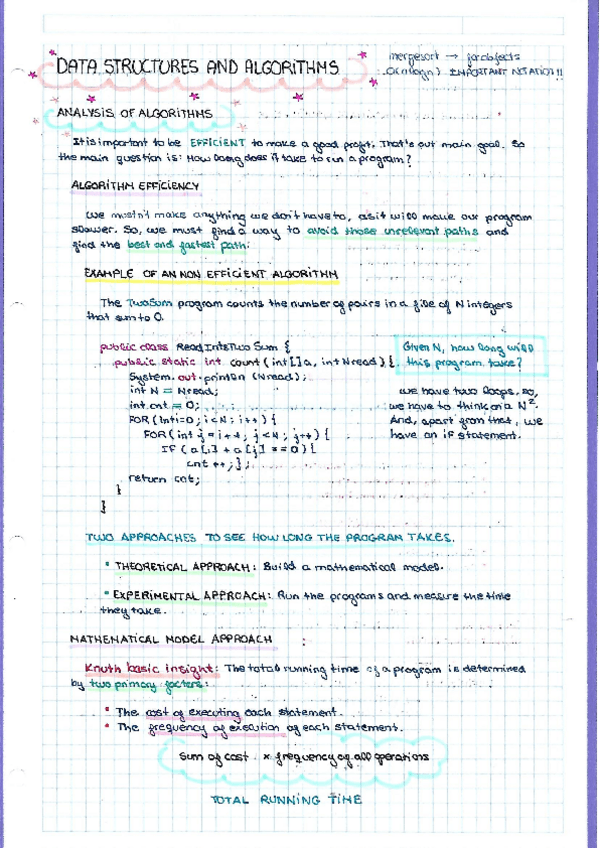 DATA STRUCTURES AND ALGORITHMS
mergesort → for objects
O(nlogn) IMPORTANT NOTATION!!
ANALYSIS OF ALGORITHMS
It is important to be EFFICIENT to make a good profit. That's out main goal. So
the main question is: How long does it take to run a program?
ALGORITHM EFFICIENCY
We mustn't make anything we don't have to, as it will make our program
slower. So, we must find a way to avoid those unrelevant paths and
find the best and fastest path.
EXAMPLE OF AN NON EFFICIENT ALGORITHM
The TwoSum program counts the number of pairs in a file of N integers
that sum to 0.
public class ReadIntsTwoSum {
public static int count (int[] a, int Nread) {
System.out.println (Nread);
int N = Nread;
int cnt = 0;
FOR (int i=0; i<N; i++) {
FOR (int j = i+1; j<N; j++) {
IF (a[i] + a[j] == 0) {
cnt ++; } ;
return cnt;
}
}
Given N, how long will
this program take?
We have two loops, so,
we have to think on a N².
And, apart from that, we
have an if statement.
TWO APPROACHES TO SEE HOW LONG THE PROGRAM TAKES.
• THEORETICAL APPROACH: Build a mathematical model.
• EXPERIMENTAL APPROACH: Run the programs and measure the time
they take.
MATHEMATICAL MODEL APPROACH
Knuth basic insight: The total running time of a program is determined
by two primary factors:
• The cost of executing each statement.
• The frequency of execution of each statement.
Sum of cost × frequency of all operations
TOTAL RUNNING TIME